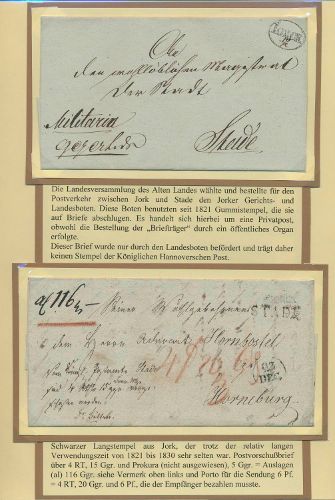 JORCK
den wohllöblichen Magistrat
der Stadt
Militaria
Stade
Die Landesversammlung des Alten Landes wählte und bestellte für den
Postverkehr zwischen Jork und Stade den Jorker Gerichts- und
Landesboten. Diese Boten benutzten seit 1821 Gummistempel, die sie
auf Briefe abschlugen. Es handelt sich hierbei um eine Privatpost,
obwohl die Bestellung der „Briefträger" durch ein öffentliches Organ
erfolgte.
Dieser Brief wurde nur durch den Landesboten befördert und trägt daher
keinen Stempel der Königlichen Hannoverschen Post.
al 116
Seiner Wohlgebohren
STADE
dem Herrn Advocat Hornbostel
23
DEC.
Horneburg
Schwarzer Langstempel aus Jork, der trotz der relativ langen
Verwendungszeit von 1821 bis 1830 sehr selten war. Postvorschußbrief
über 4 RT, 15 Ggr. und Prokura (nicht ausgewiesen), 5 Ggr. = Auslagen
(al) 116 Ggr. siehe Vermerk oben links und Porto für die Sendung 6 Pf.
= 4 RT, 20 Ggr. und 6 Pf., die der Empfänger bezahlen mußte.